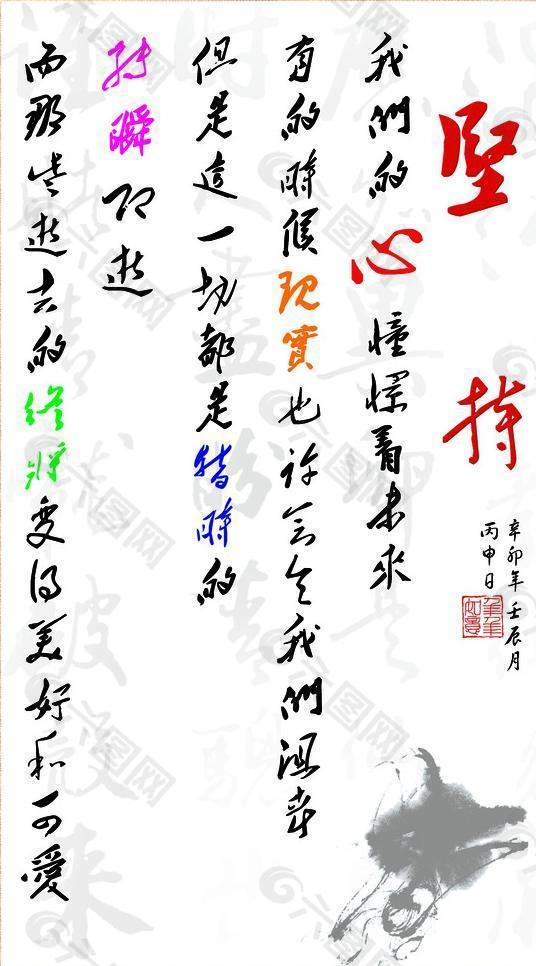 堅持
我們的心憧憬着未來
有的時候現實也許会令我們沮喪
但是這一切都是暫時的
轉瞬即逝
而那些逝去的終將变得美好和可愛
辛卯年壬辰月
丙申日